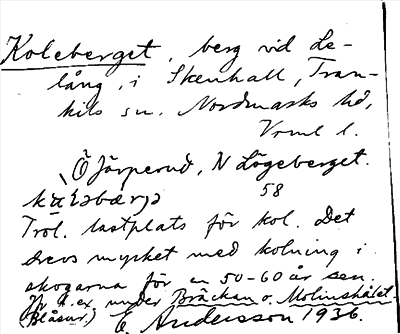 Koleberget, berg vid Le-
lång, i Skenhall, Tran-
kils sn. Nordmarks hd,
Vrml l.
Ö Järperud, N Lögeberget.
58
Trol. lastplats för kol. Det
drevs mycket med kolning i
skogarna för en 50-60 år sen.
t.ex. under Bräckan o. Molinshålet
(Blåsur.) E. Andersson 1936.